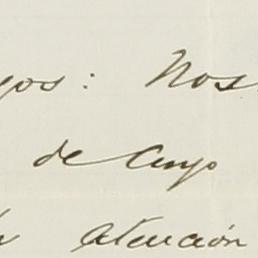 gos: Nos
de Cuyo
atención